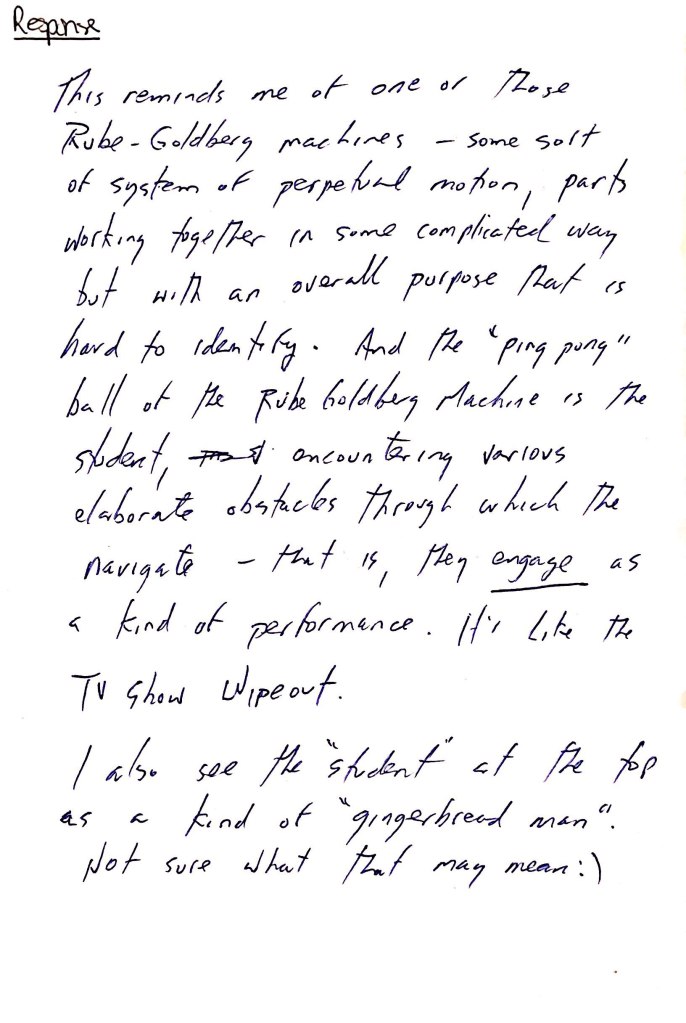 Response
This reminds me of one of those
Rube-Goldberg machines - some sort
of system of perpetual motion, parts
working together in some complicated way
but with an overall purpose that is
hard to identify. And the "ping pong"
ball of the Rube Goldberg Machine is the
student, encountering various
elaborate obstacles through which the
navigate - that is, they engage as
a kind of performance. It's like the
TV show Wipeout.
I also see the "student" at the top
as a kind of "gingerbread man".
Not sure what that may mean :)